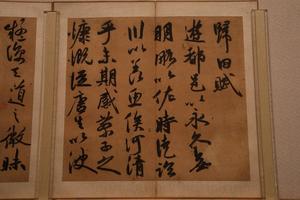 歸田賦
遊都邑以永久無
明略以佐時徒臨
川以羨魚俟河清
乎未期感蔡子之
慷慨從唐生以決
疑諒天道之微昧